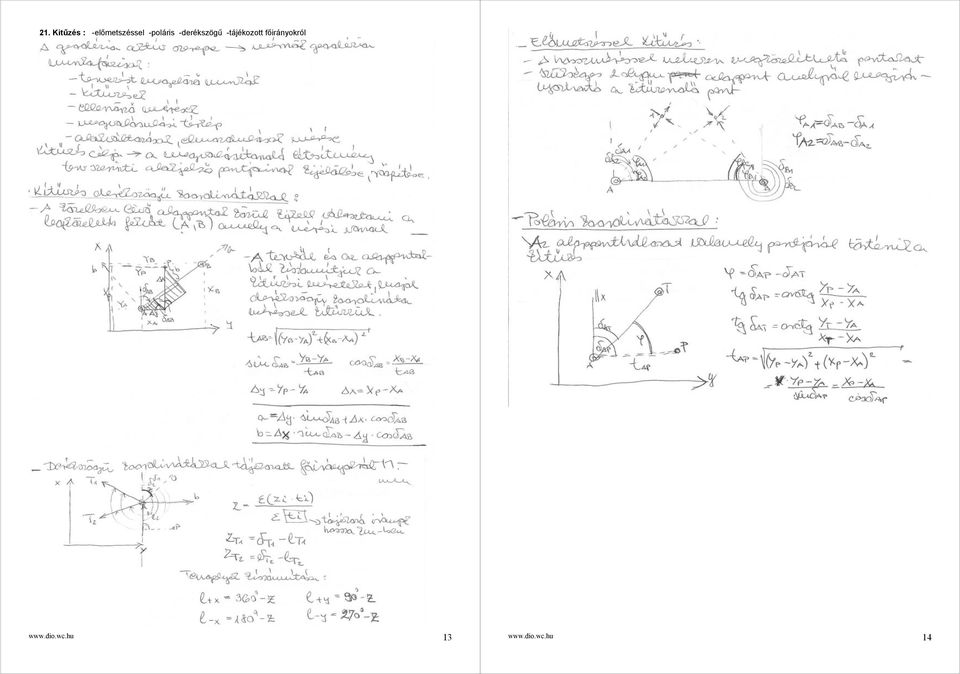 21. Kitűzés : -előmetszéssel -poláris -derékszögű -tájékozott főirányokról
A geodézia aktív szerepe → mérnök geodézia
munkafázisai:
- tervezést megelőző munkák
- kitűzések
- ellenőrző mérések
- megvalósulási térkép
- alakváltozások, elmozdulások mérése
Kitűzés célja → a megvalósítandó létesítmény
terv szerinti alakjelző pontjainak kijelölése,
Kitűzés derékszögű koordinátákkal:
- A közelben lévő alappontok közül ki kell választani a
legközelebbi (A, B) amely a mérési vonal
- A tervek és az alappontok-
ból kiszámítjuk a
kitűzési méreteket, majd
derékszögű koordináta
méréssel kitűzzük.
tAB=√(YB-YA)²+(XB-XA)²
sin δAB = YB-YA / tAB cosδAB = XB-XA / tAB
Δy = YP-YA Δx = XP-XA
a = Δy · sin δAB + Δx · cos δAB
b = Δx · sin δAB - Δy · cos δAB
- Derékszögű koordinátákkal tájékozott főirányokról
z = Σ(zi · ti) / Σ[ti] → tájékozó irányok
hossza km-ben
ZT1 = δT1 - lT1
ZT2 = δT2 - lT2
Tengelyek kiszámítása:
l+x = 360° - z l+y = 90° - z
l-x = 180° - z l-y = 270° - z
www.dio.wc.hu 13
- Előmetszéssel kitűzés:
- A hosszméréssel nehezen megközelíthető pontokat
- Szükséges 2 olyan alappont amelyről megirá-
nyozható a kitűzendő pont
φA1=δAB-δA1
φA2=δAB-δA2
- Poláris koordinátákkal:
Az alapponthálózat valamely pontjáról történik a
kitűzés
φ = δAP - δAT
tg δAP = arctg YP - YA / XP - XA
tg δAT = arctg YT - YA / XT - XA
tAP = √(YP-YA)² + (XP-XA)² =
= YP-YA / sinδAP = XP-XA / cosδAP
www.dio.wc.hu 14